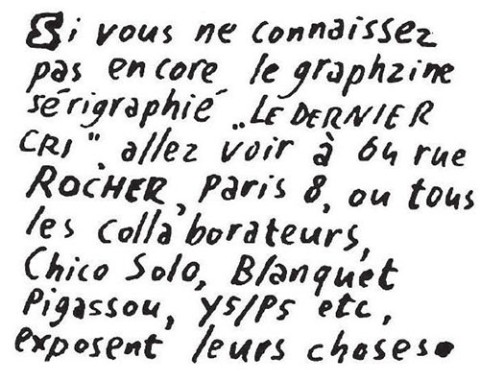 Si vous ne connaissez
pas encore le graphzine
sérigraphié „LE DERNIER
CRI". allez voir à 64 rue
ROCHER, Paris 8, ou tous
les collaborateurs,
Chico Solo, Blanquet
Pigassou, YS/PS etc,
exposent leurs choses.